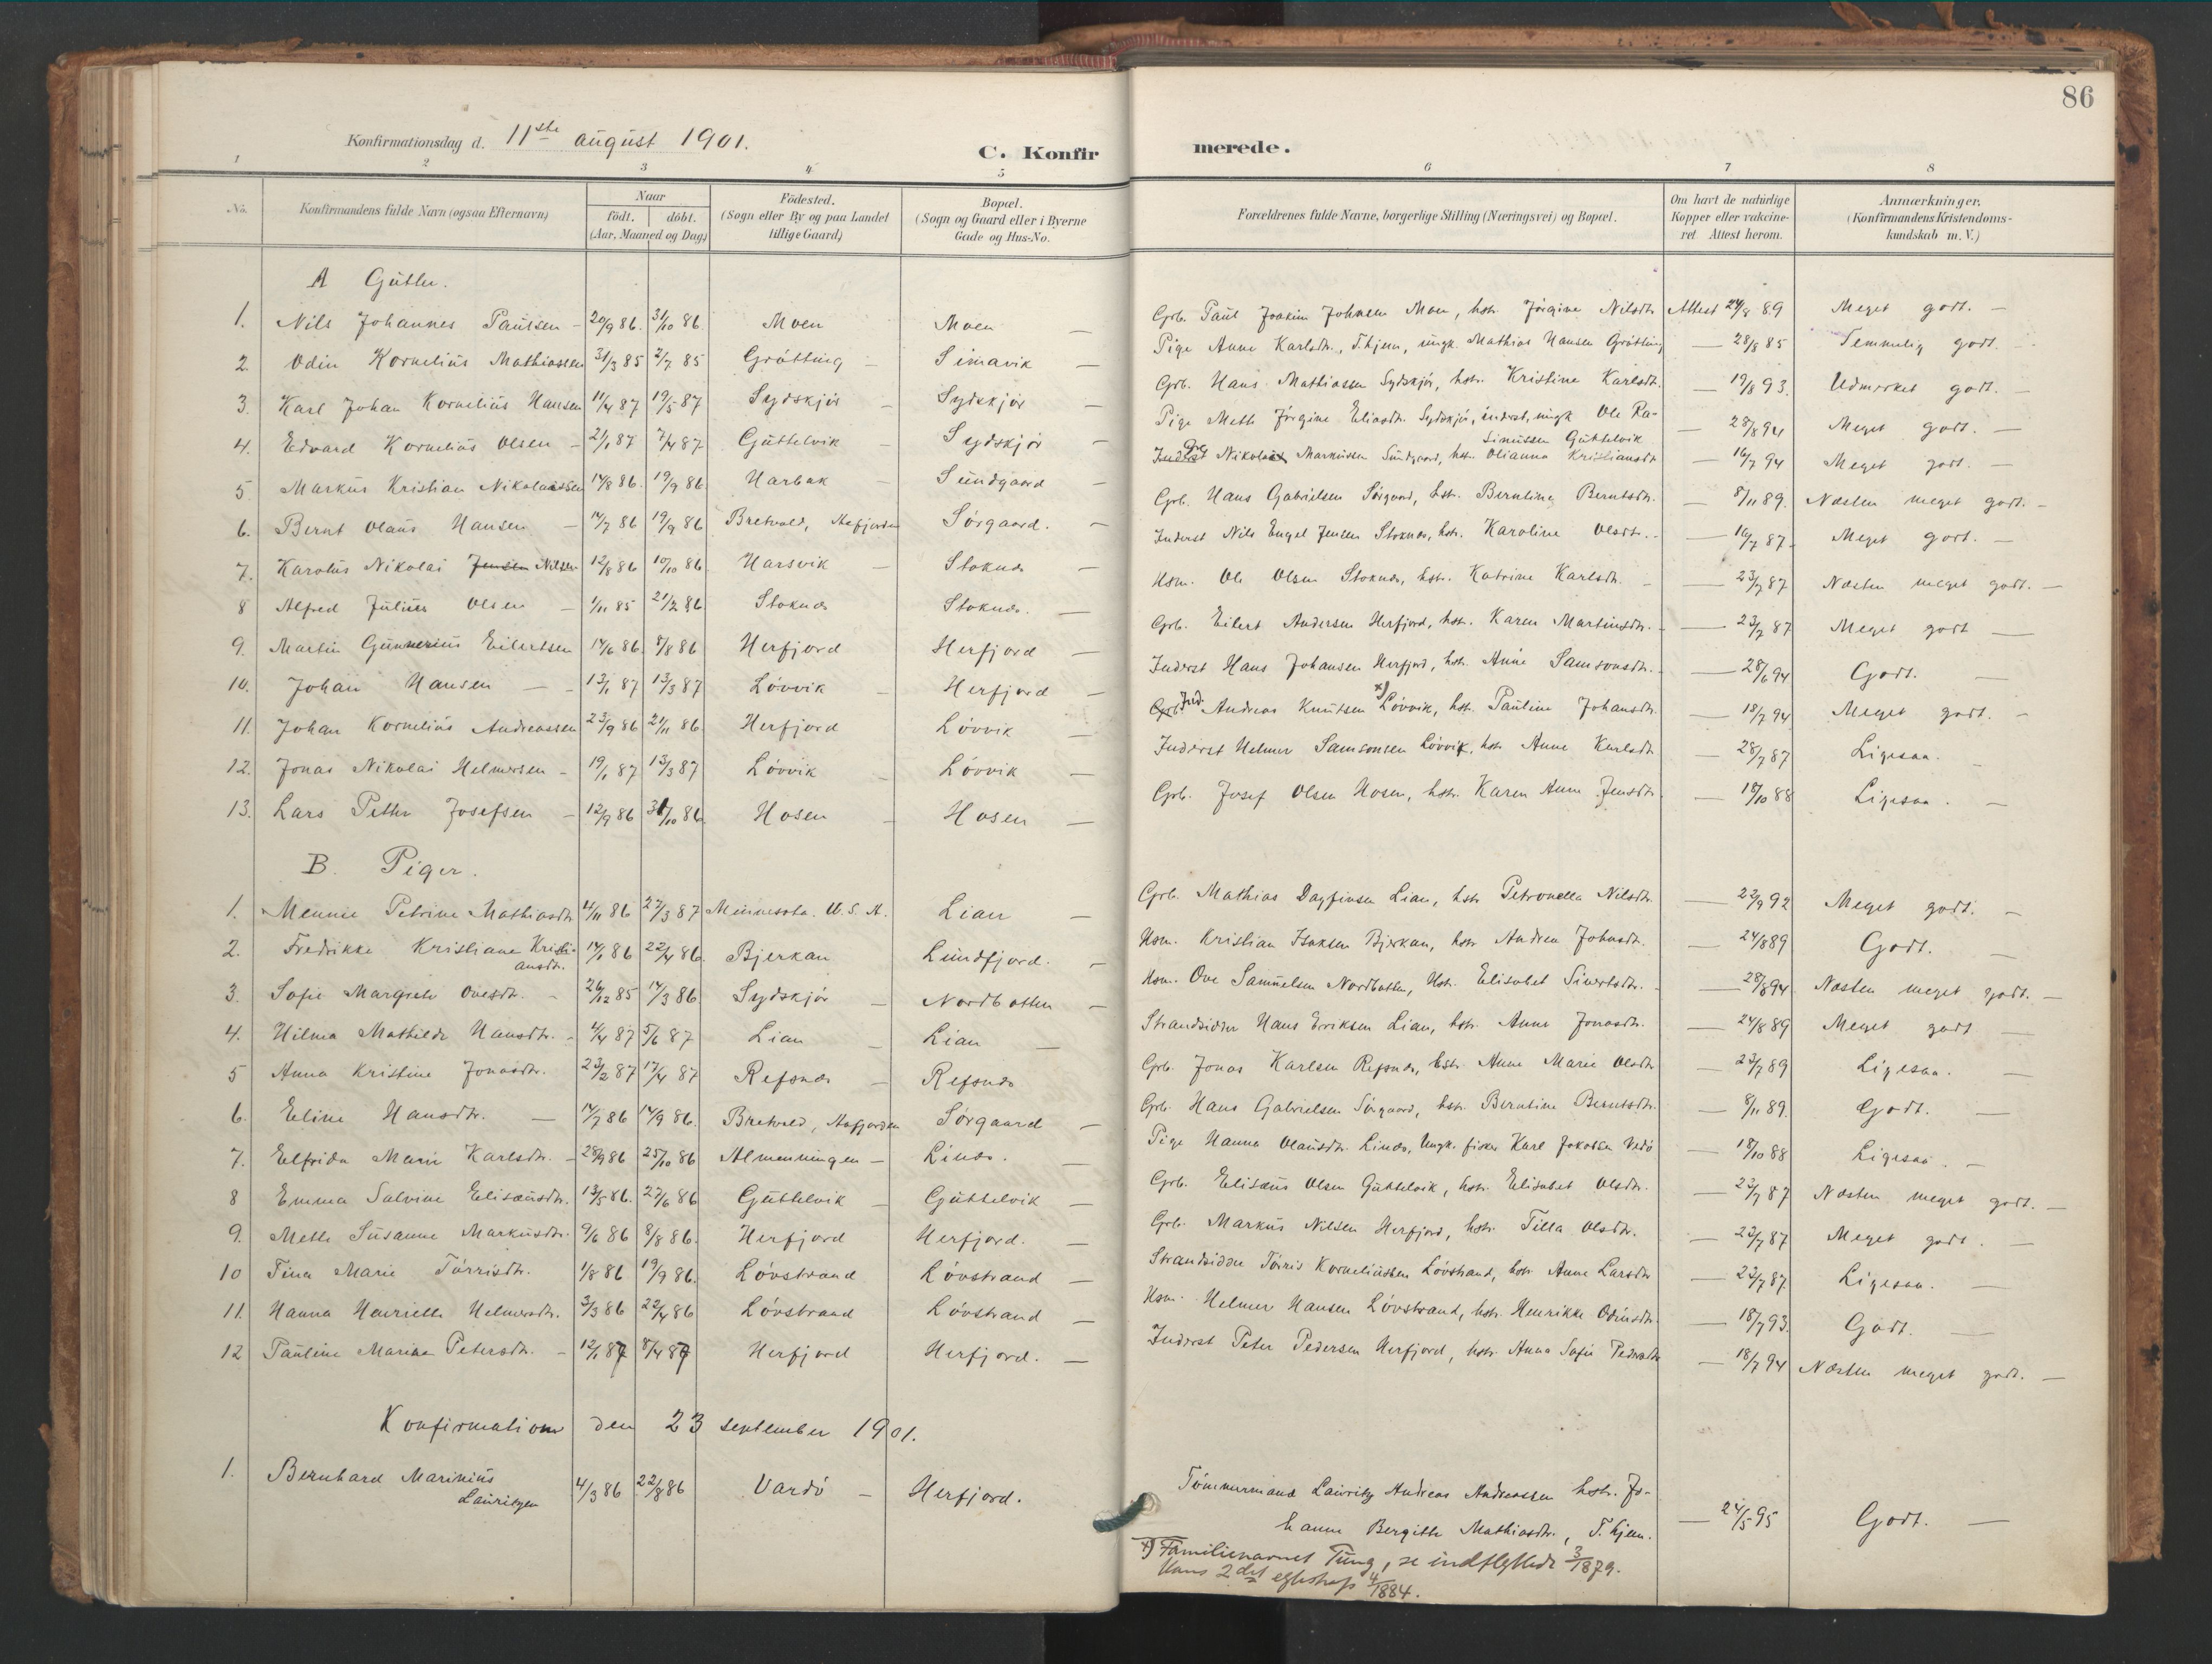 86
Konfirmationsdag d. 11ste august 1901.
C. Konfirmerede.
1 2 3 4 5 6 7 8
No. | Konfirmandens fulde Navn (ogsaa Efternavn) | Naar født. | døbt. (Aar, Maaned og Dag) | Fødested. (Sogn eller By og paa Landet tillige Gaard) | Bopæl. (Sogn og Gaard eller i Byerne Gade og Hus-No. | Forældrenes fulde Navne, borgerlige Stilling (Næringsvei) og Bopæl. | Om havt de natúrlige Kopper eller vakcineret Attest herom. | Anmærkninger. (Konfirmandens Kristendomskundskab m. V.)
A Gütter.
1. Nils Johannes Paulsen – 20/9 86. 31/10 86. Moen Moen — Grb. Paul Joakim Johnsen Moen, hstr. Jørgine Nilsdtr. Attest 24/8 89 Meget godt. —
2. Odin Kornelius Mathiassen 31/3 85 2/7 85 Grøtting – Simavik — Pige Anne Karlsdtr., T.hjem, ungk. Mathias Hansen Grøtting — 28/8 85 Temmelig godt.
3. Karl Johan Kornelius Hansen 11/4 87 19/5 87 Sydskjør – Sydskjør — Grb. Hans Mathiassen Sydskjør, hstr. Kristine Karlsdtr. — 19/8 93. Udmerket godt. —
4. Edvard Kornelius Olsen – 21/1 87 7/4 87 Guttelvik – Sydskjør — Pige Meth Jørgine Eliasdtr. Sydskjør, inderst, ungk Ole Rasmussen Guttelvik — 28/8 94 Meget godt. —
5 Markus Kristian Nikolaissen 14/8 86. 19/9 86. Harbak – Sundgaard — Inderst Nikolai Markussen Sundgaard, hstr. Olianna Kristiansdtr — 16/7 94 Meget godt. —
6. Bernt Olaus Hansen — 14/7 86 19/9 86 Bretvold, Aafjorden Sørgaard. — Grb. Hans Gabrielsen Sørgaard, hstr. Berntine Berntsdtr. — 8/11 89. Næsten meget godt. –
7. Karolus Nikolai Jensen Nilsen 12/8 86 10/10 86 Harsvik – Stoknes — Inderst Nils Engel Jensen Stoknes, hstr. Karoline Olsdtr. – — 16/7 87 Meget godt. —
8 Alfred Julius Olsen — 1/11 85 21/2 86 Stoknes Stoknes. — Hsm. Ole Olsen Stoknes, hstr. Katrine Karlsdtr. – — 23/7 87 Næsten meget godt. —
9. Martin Gunnerius Eilertsen 14/6 86. 8/8 86 Herfjord Herfjord — Grb. Eilert Andersen Herfjord, hstr. Karen Martinsdtr. — 23/7 87 Meget godt —
10. Johan Hansen — 13/1 87 13/3 87 Løvvik – Herfjord — Inderst Hans Johansen Herfjord, hstr. Anne Samsonsdtr. — 28/6 94 Godt. —
11. Johan Kornelius Andreassen 23/9 86 21/11 86. Herfjord Løvvik — Grb. Ind. Andreas Knutsen x) Løvvik, hstr. Pauline Johansdtr. — 18/7 94 Meget godt. –
12. Jonas Nikolai Helmersen – 19/1 87 13/3 87 Løvvik – Løvvik — Inderst Helmer Samsonsen Løvvik, hstr Anne Karlsdtr — 28/7 87 Ligesaa. –
13. Lars Petter Josefsen – 12/9 86 31/10 86. Hosen – Hosen — Grb. Josef Olsen Hosen, hstr. Karen Anne Jensdtr. — 18/10 88 Ligesaa. —
B. Piger.
1. Mennie Petrine Mathiasdtr 4/11 86 27/3 87 Minnesota. U. S. A. Lian — Grb. Mathias Dagfinsen Lian, hstr Petronella Nilsdtr. — 22/9 92 Meget godt. —
2. Fredrikke Kristiane Kristiansdtr. 14/1 86 22/4 86. Bjerkan Lundfjord. – Hsm. Kristian Isaksen Bjerkan, hstr Andrea Johnsdtr. — 24/8 89 Godt. —
3. Sofie Margrete Ovesdtr. – 26/12 85 14/3 86. Sydskjør – Nordbotten — Hsm. Ove Samuelsen Nordbotten, Hstr. Elisabet Sivertsdtr. — 28/8 94 Næsten meget godt. —
4. Hilma Mathilde Hansdtr. – 4/4 87 5/6 87 Lian – Lian — Strandsidder Hans Eriksen Lian, hstr. Anne Jonasdtr. — 24/8 89 Meget godt —
5 Anna Kristine Jonasdtr. 23/2 87 17/4 87 Refsnes – Refsnes Grb. Jonas Karlsen Refsnes, hstr. Anne Marie Olsdtr — 23/7 89 Ligesaa. —
6. Eline Hansdtr. — 14/7 86 14/9 86. Bretvold, Aafjorden Sørgaard – Grb. Hans Gabrielsen Sørgaard, hstr. Berntine Berntsdtr. — 8/11 89. Godt. —
7. Elfrida Marie Karlsdtr. – 28/9 86 25/10 86 Almenningen – Linds. — Pige Hanna Olausdtr. Linds, Ungk. fisker Karl Jakobsen Vedø — 18/10 88 Ligesaa. —
8 Emma Salvine Elisæusdtr. 13/5 86. 27/6 86 Guttelvik – Guttelvik — Grb. Elisæus Olsen Guttelvik, hstr. Elisabet Olsdtr. — 23/7 87 Næsten meget godt. —
9. Mette Susanne Markusdtr. 9/6 86 8/8 86. Herfjord Herfjord. — Grb. Markus Nilsen Herfjord, hstr. Tilla Olsdtr. — 23/7 87 Meget godt. —
10 Tina Marie Tørrisdtr. 1/8 86 19/9 86. Løvstrand Løvstrand — Strandsidder Tørris Korneliussen Løvstrand, hstr Anne Larsdtr — 23/7 87 Ligesaa. —
11. Hanna Henriette Helmersdtr. 3/3 86 22/4 86 Løvstrand Løvstrand — Hsm. Helmer Hansen Løvstrand, hstr. Henrikke Odinsdtr. — 18/7 93. Godt. —
12 Pauline Marie Petersdtr. – 12/1 87 8/4 87 Herfjord Herfjord. — Inderst Peter Pedersen Herfjord, hstr. Anna Sofie Pedersdtr — 18/7 94 Næsten meget godt. —
Konfirmation den 23 september 1901.
1. Bernhard Marinius Lauritzen 4/3 86 22/8 86 Vardø – Herfjord. Tømmermand Lauritz Andreas Andreassen hstr. Johanne Bergitte Mathiasdtr., T. hjem. — 24/5 95 Godt. —
x) Familienavnet Tung, se indflyttede 3/1879.
Hans 2det egteskap 4/1884.